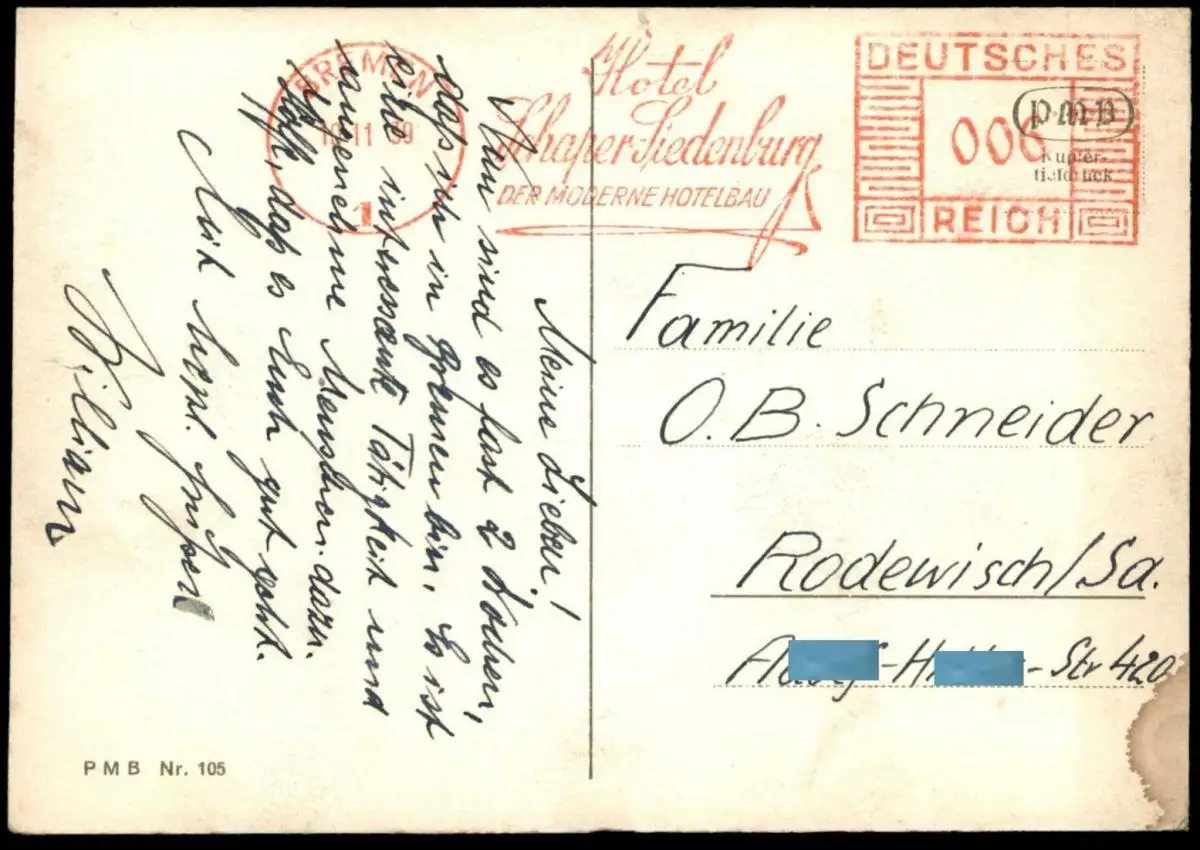 BREMEN
11 39
1
Hotel
Schaper-Siedenburg
DER MODERNE HOTELBAU
DEUTSCHES
006
REICH
pmb
Kupfer-
tiefdruck
Meine Lieben!
Nun sind es fast 2 Wochen,
daß ich in Bremen bin. Es ist
eine interessante Tätigkeit und
angenehme Menschen dazu.
Hoffe, daß es Euch gut geht.
Mit herzl. Grüßen
Familie
O. B. Schneider
Rodewisch/Sa.
Str 420
PMB Nr. 105